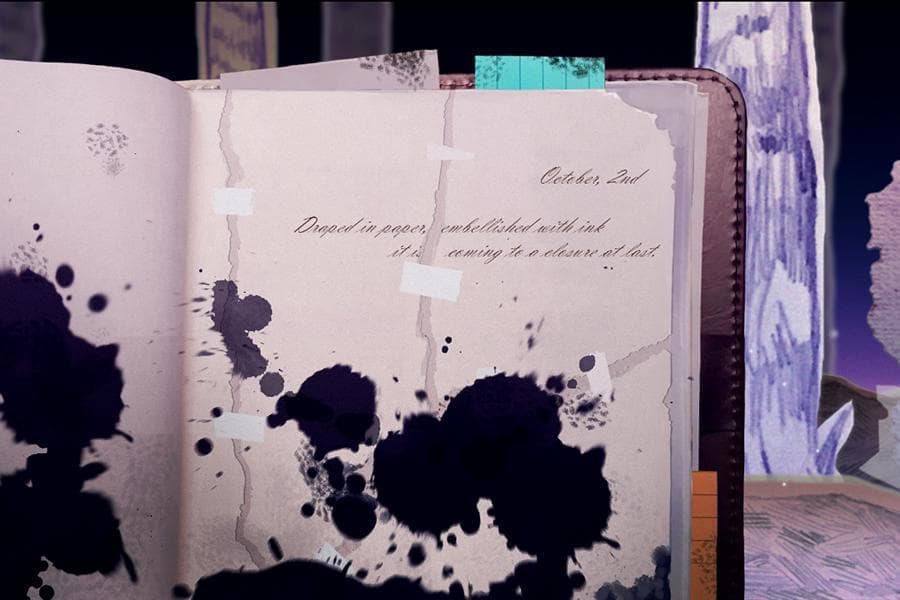 October, 2nd
Draped in paper, embellished with ink
it is coming to a closure at last.